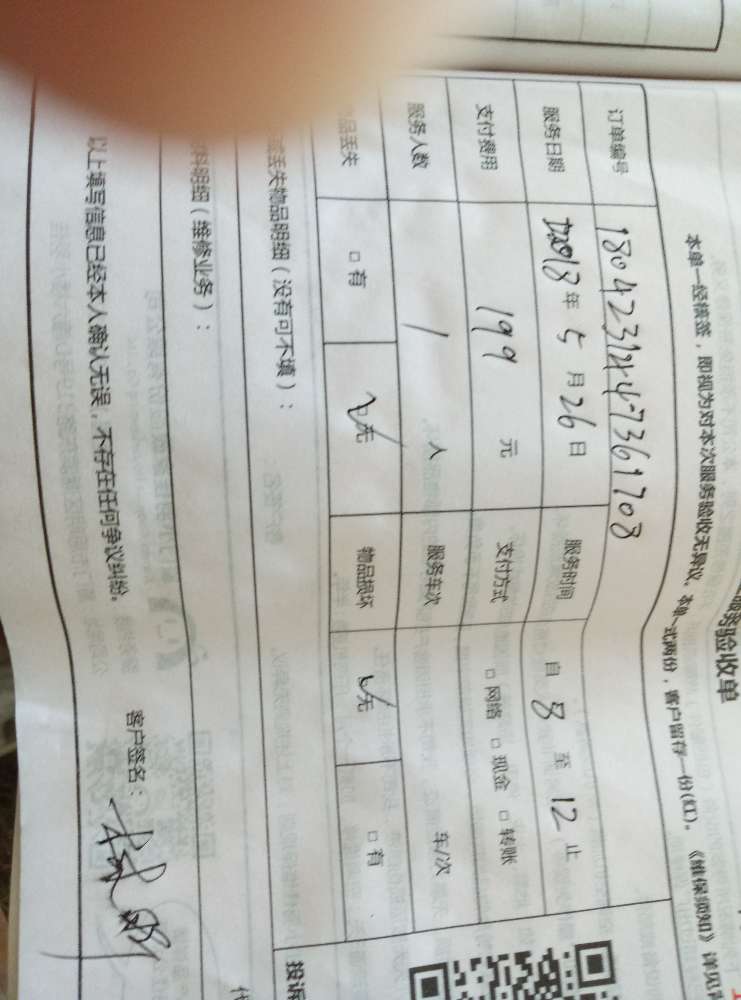 服务验收单
本单一经核签，即视为对本次服务验收无异议。本单一式两份，客户留存一份(红)。《维保须知》详见
订单编号
服务日期 2018年 5月 26日 服务时间 自 8 至 12 止
支付费用 199 元 支付方式 □网络 □现金 □转账
服务人数 1 人 服务车次 车/次
品丢失 □有 ☑无 物品损坏 ☑无 □有
或丢失物品明细（没有可不填）：
料明细（维修业务）：
以上填写信息已经本人确认无误，不存在任何争议纠纷。
客户签名：
投诉
代